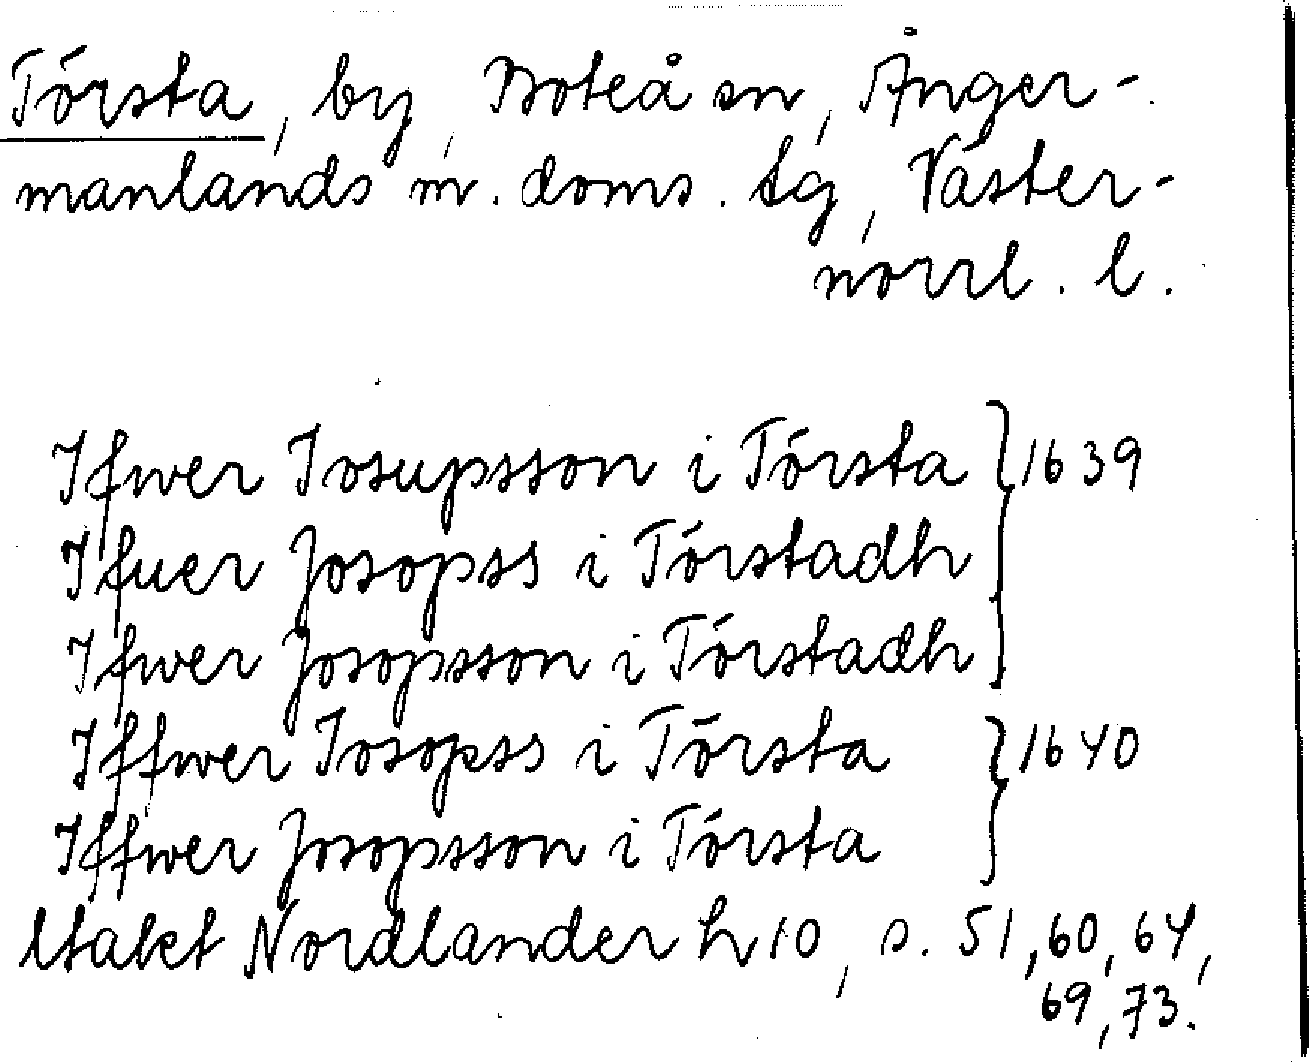 Törsta, by, Boteå sn, Ånger-
manlands m. doms. tg, Väster-
norrl. l.
Ifwer Iosupsson i Törsta } 1639
Ifuer Josopss i Törstadh
Ifwer Josopsson i Törstadh
Iffwer Iosopss i Törsta } 1640
Iffwer Josopsson i Törsta
Utakt Nordlander h 10, s. 51, 60, 64,
69, 73.